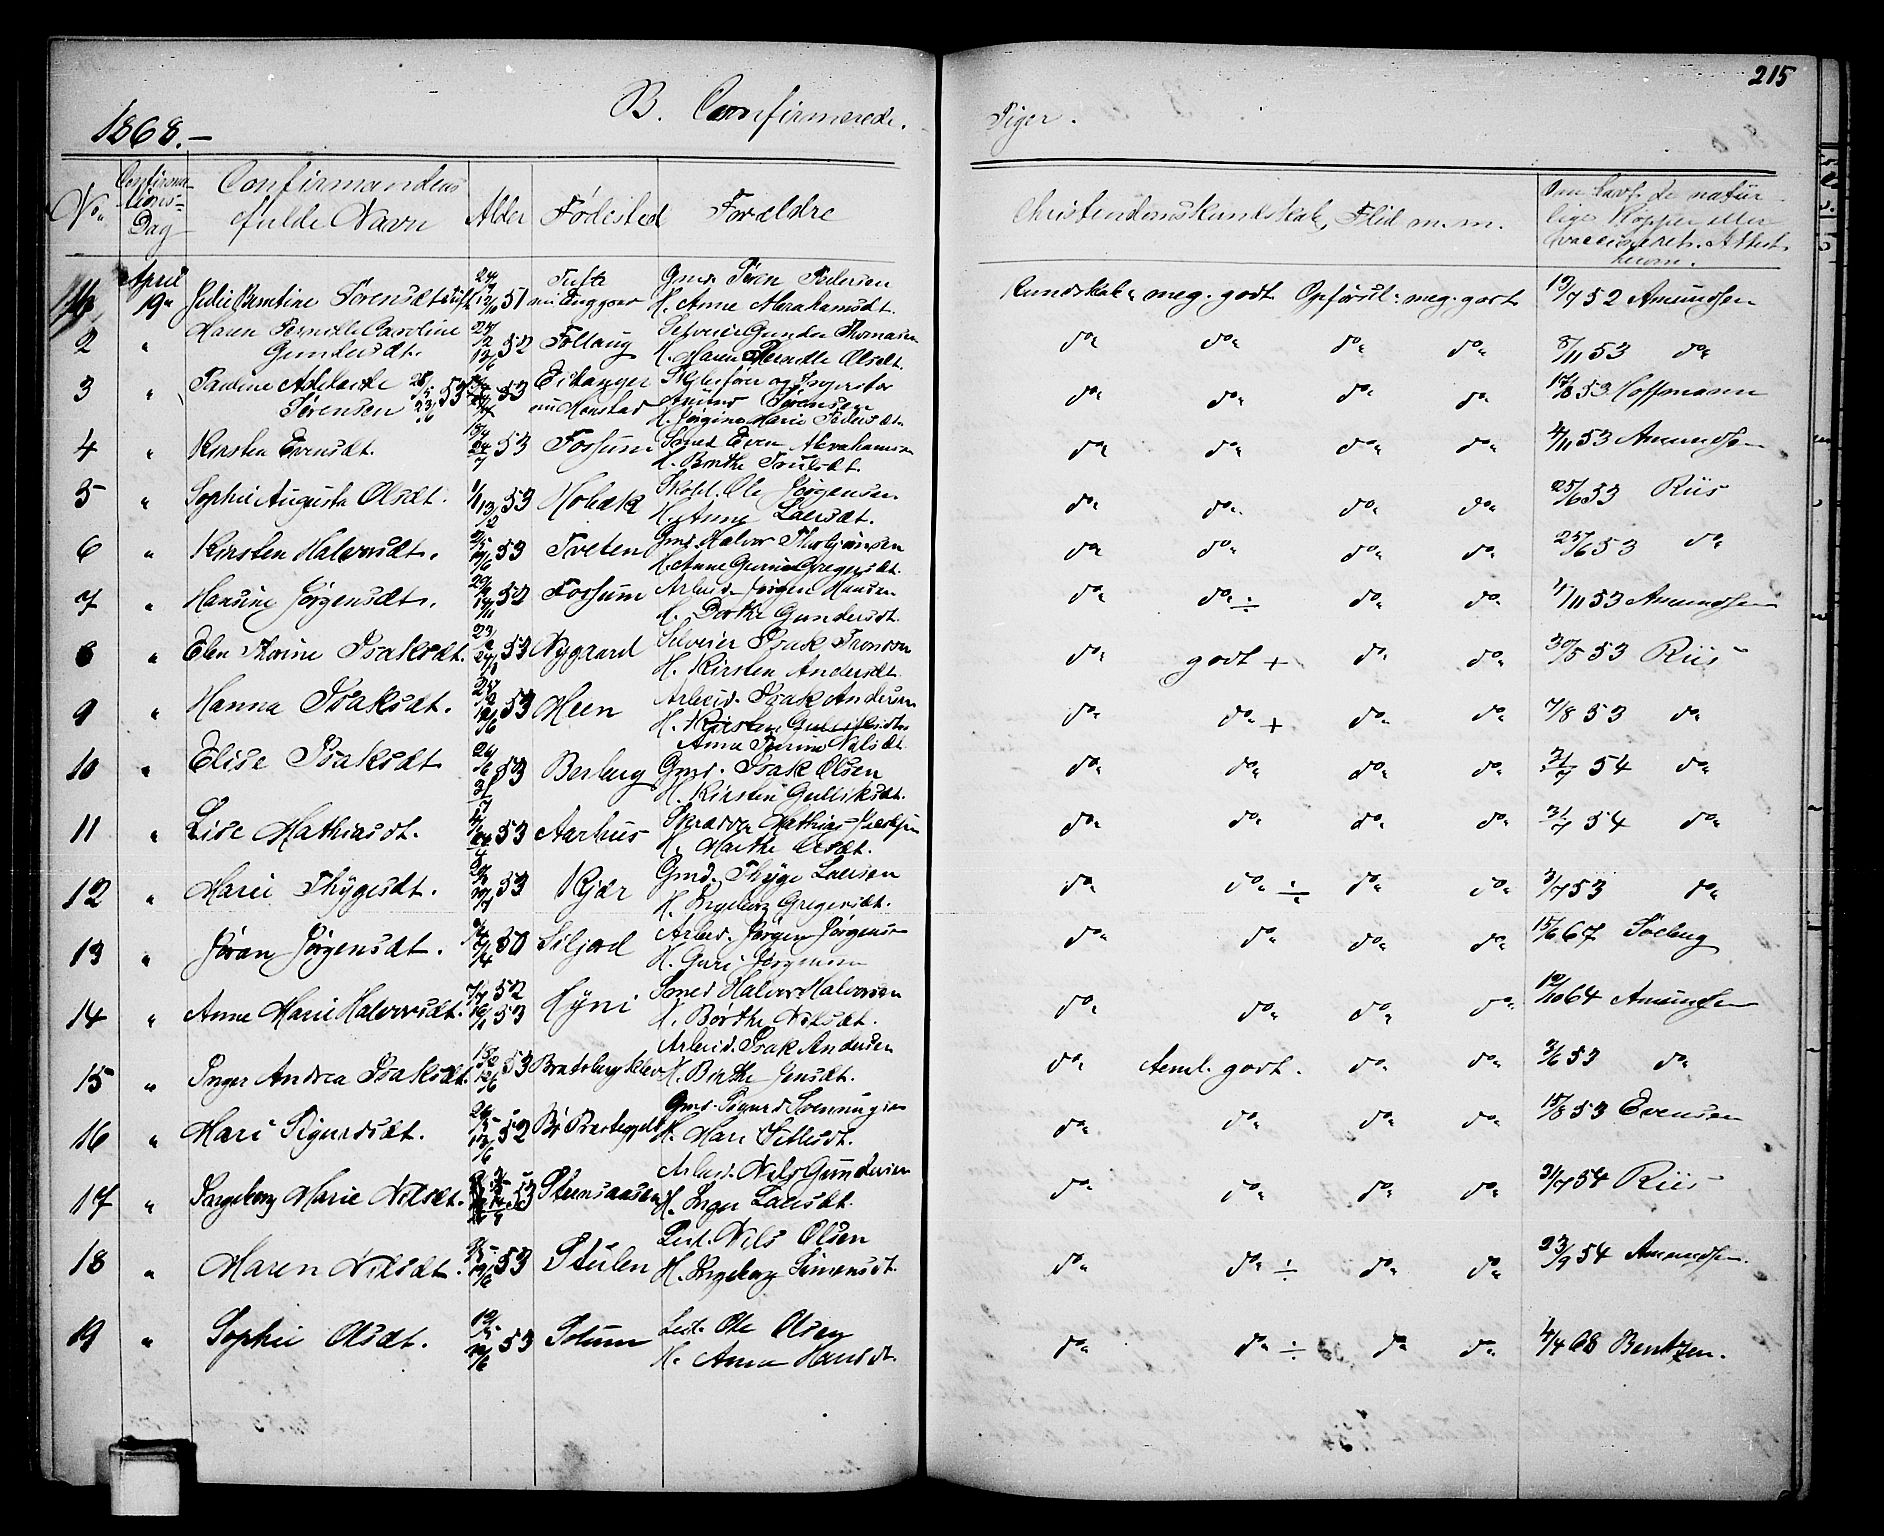 215
B. Confirmerede.
Piger.
1868.-
No.
Confirma-
tions-
Dag
Confirmandens
fulde Navn
Alder
Fødested
Forældre
Christendomskundskab, Flid m.m.
Om havt de natür-
lige Kopper eller
vaccineret. Attest
herom.
April
1 19de Julie Bentine Sörensdt 24/9 51 Tufte Gmd. Sören Pedersen
nu Enggrav H. Anne Abrahamsdt.
Kundskab: meg. godt Opförsel: meg. godt 13/7 52 Amundsen
2 " Maren Pernille Caroline 52 Foltaug Selveier Gunder Thomasen
Gundersdt. H. Maren Pernille Olsdt.
do do do do 8/11 53 do
3 " Pauline Adelaide 53 Eidanger
Sörensen nu Henstad Amund Sörensen
H. Jörgine Marie Pedersdt.
do do do do 17/8 53 Hoffmann
4 " Kirsten Evensdt. 53 Fossum Smed Even Abrahamsen
H. Berthe Truelsdt.
do do do do 4/11 53 Amundsen
5 " Sophie Augusta Olsdt. 53 Holæk Skobl. Ole Jörgensen
H. Anne Larsdt.
do do do do 25/6 53 Riis
6 " Kirsten Halvorsdt. 53 Tveten Gmd. Halvor Thorbjørnsen
H. Anne Gurine Gregersdt.
do do do do 25/6 53 do
7 " Hansine Jörgensdt. 52 Fossum Arbeid. Jörgen Hansen
H. Dorthe Gundersdt.
do do ÷ do do 1/11 53 Amundsen
8 " Elen Thorine Isaksdt. 53 Nygaard Selveier Isak Tronsen
H. Kirsten Andersdt.
do godt + do do 30/5 53 Riis
9 " Hanna Isaksdt. 53 Meen Arbeid. Isak Andersen
H. Kirsten Gulliksdtr
Anne Nilsdt.
do do + do do 7/8 53 do
10 " Elise Isaksdt 53 Berberg Gmd. Isak Olsen
H. Kirsten Gulliksdt.
do do do do 3/7 54 do
11 " Lise Mathiasdt. 53 Aarhus Skrædder Mathias
H. Marthe Olsdt.
do do do do 31/7 54 do
12 " Marie Thygesdt. 53 Kjær Gmd. Thyge Larsen
H. Ingeborg Gregersdt.
do do ÷ do do 3/7 53 do
13 " Jöran Jörgensdt. 50 Siljord Arbeid. Jörgen Jörgensen
H. Guri Jörgensen
do do do do 15/6 67 Solberg
14 " Anne Marie Halvorsdt. 7/7 52 Hyni Smed Halvor Halvorsen
53 H. Börthe Nilsdt.
do do do do 12/10 64 Amundsen
15 " Inger Andrea Isaksdt. 53 Bratsbergklev Arbeid. Isak Andersen
H. Birthe Jensdt.
do Teml. godt. do do 3/6 53 do
16 " Mari Sigurdsdt. 52 Gmd. Sigurd Svennugsen
H. Mari
do do do do 15/8 53 Evensen
17 " Ingeborg Marie Nilsdt. 53 Steensaasen Arbeid. Nils Gundersen
H. Inger Larsdt.
do do do do 31/7 54 Riis
18 " Maren Nilsdt. 53 Stulen Leil. Nils Olsen
H. Ingeborg Simensdt.
do do ÷ do do 23/9 54 Amundsen.
19 " Sophie Olsdt. 53 Solum Leil. Ole Olsen
H. Anne Hansdt.
do do ÷ do do 4/4 68 Bentzen.